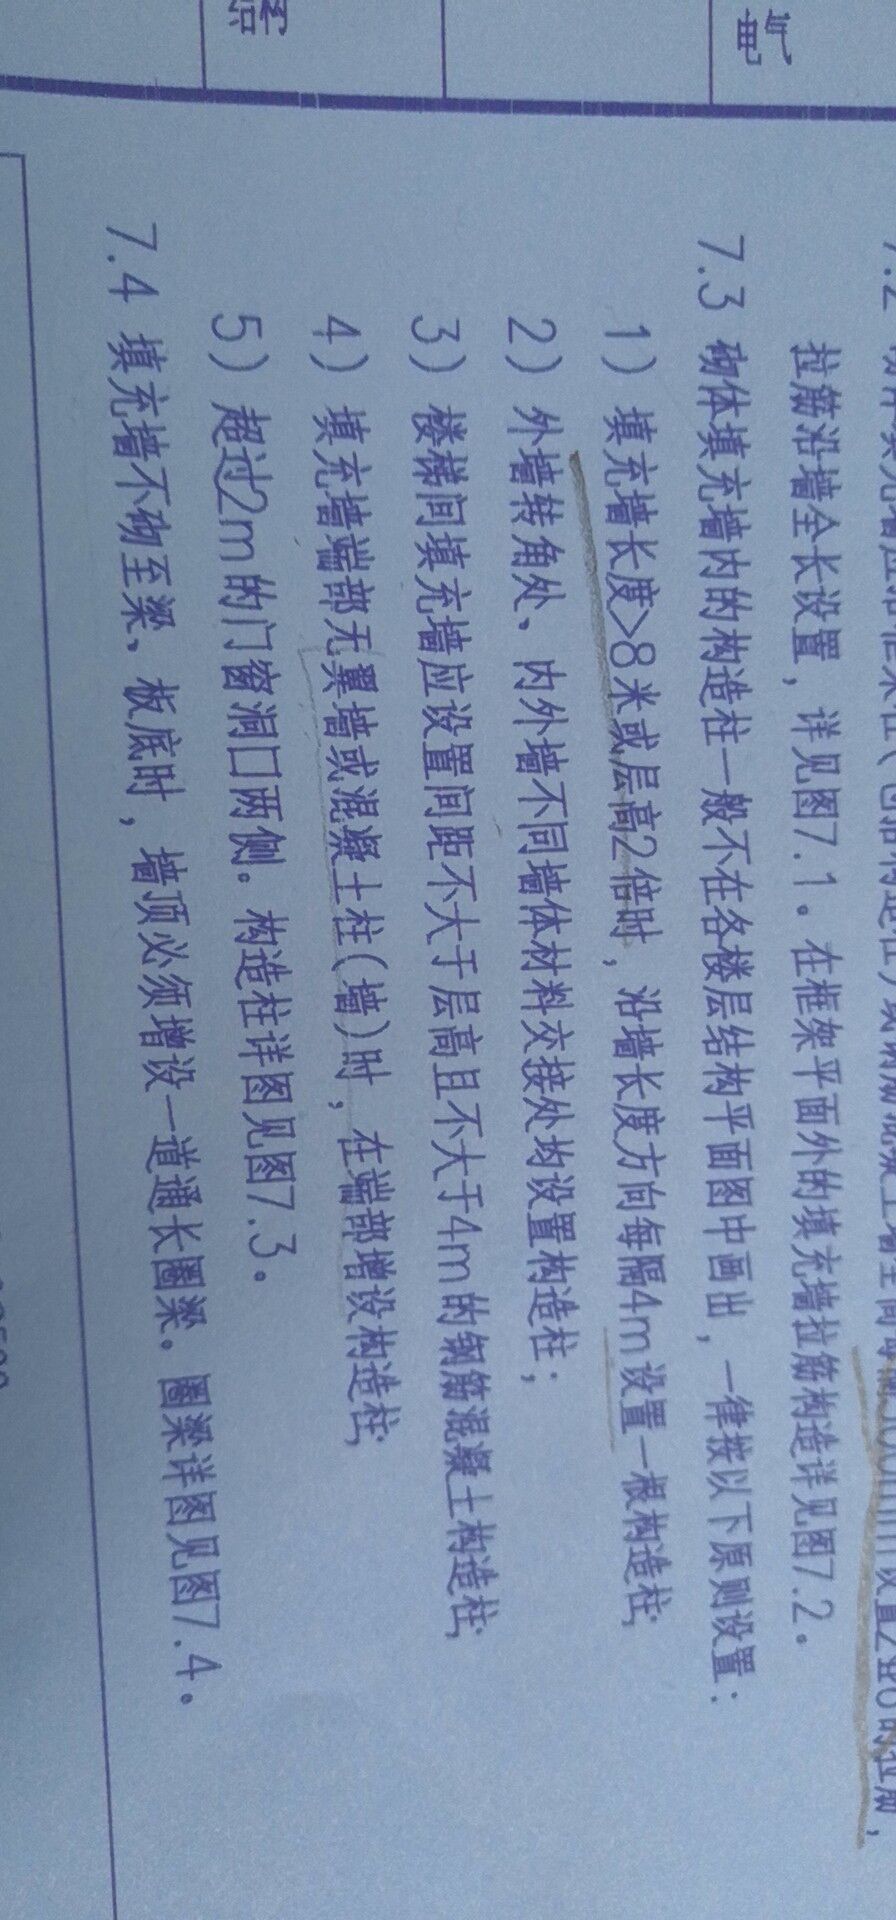 电气
拉筋沿墙全长设置，详见图7.1。在框架平面外的填充墙拉筋构造详见图7.2。
7.3 砌体填充墙内的构造柱一般不在各楼层结构平面图中画出，一律按以下原则设置：
1）填充墙长度>8米或层高2倍时，沿墙长度方向每隔4m设置一根构造柱;
2）外墙转角处、内外墙不同墙体材料交接处均设置构造柱；
3）楼梯间填充墙应设置间距不大于层高且不大于4m的钢筋混凝土构造柱;
4）填充墙端部无翼墙或混凝土柱(墙)时，在端部增设构造柱;
5）超过2m的门窗洞口两侧。构造柱详图见图7.3。
7.4 填充墙不砌至梁、板底时，墙顶必须增设一道通长圈梁。圈梁详图见图7.4。